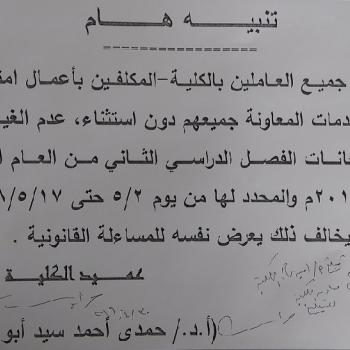 تنبيه هام
جميع العاملين بالكلية-المكلفين بأعمال
دمات المعاونة جميعهم دون استثناء، عدم الغي
انات الفصل الدراسي الثاني من العام
٢٠١م والمحدد لها من يوم ٥/٢ حتى ٨/٥/١٧
يخالف ذلك يعرض نفسه للمساءلة القانونية .
عميد الكلية
(أ.د./ حمدى أحمد سيد أبو